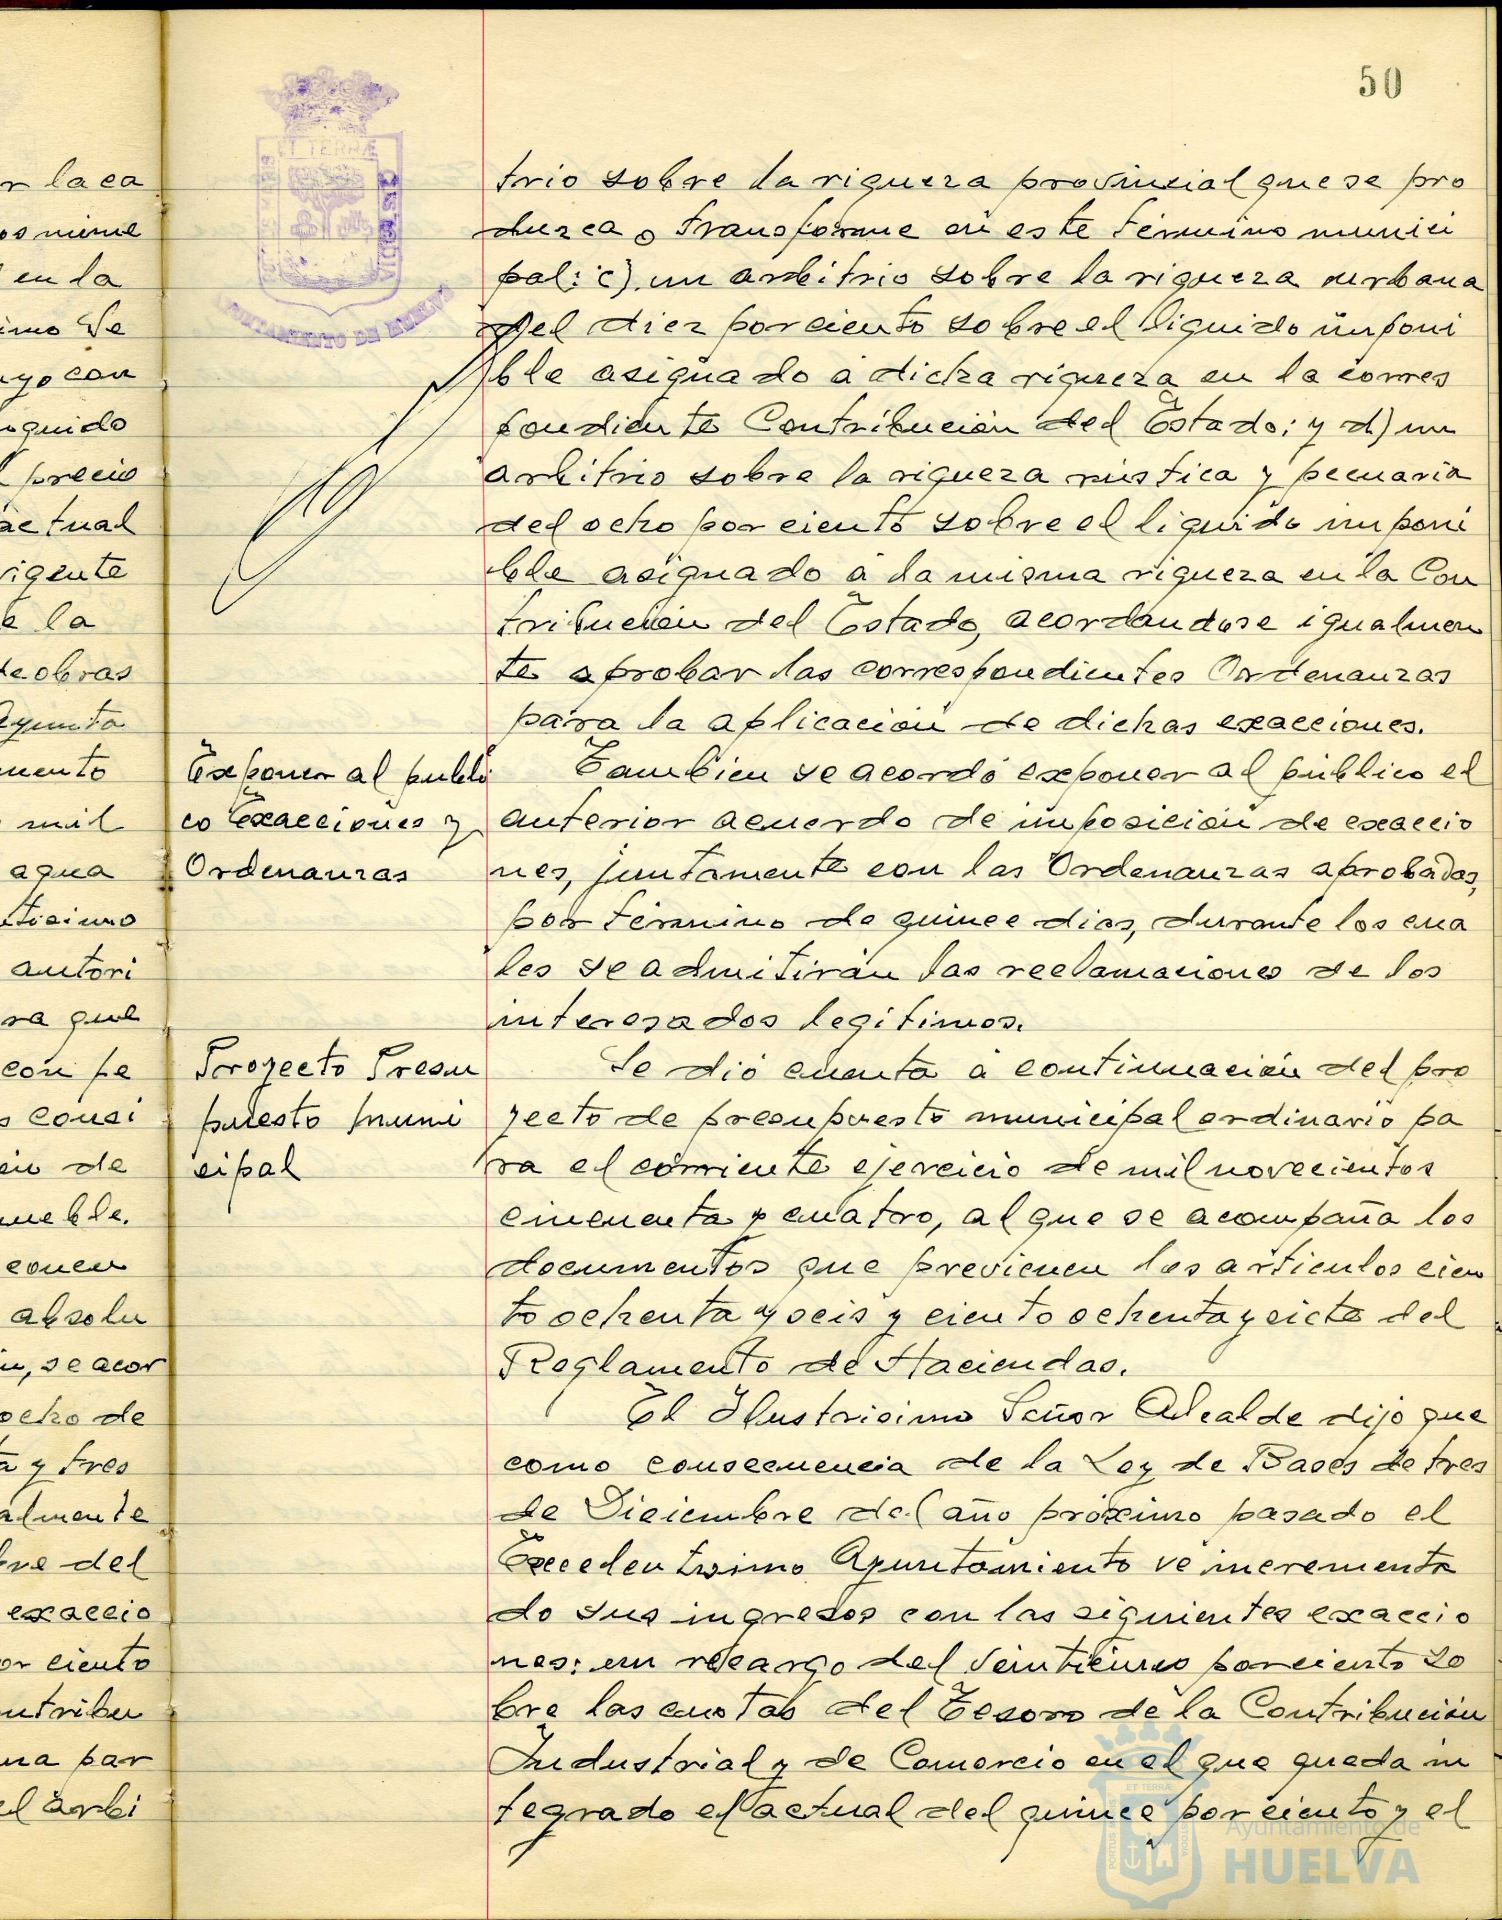 50
r la ca
en la
yo con
quido
precio
actual
vigente
e la
de obras
Ayunta
mento
mil
agua
autori
ra que
con pe
s consi
de
mueble.
absolu
n, se acor
ocho de
a y tres
almente
bre del
exaccio
or ciento
ontribu
una par
el arbi
ET TERRÆ
trio sobre la riqueza provincial que se pro
duzca o transforme en este término munici
pal: c) un arbitrio sobre la riqueza urbana
del diez por ciento sobre el líquido imponi
ble asignado a dicha riqueza en la corres
pondiente Contribución del Estado; y d) un
arbitrio sobre la riqueza rústica y pecuaria
del ocho por ciento sobre el líquido imponi
ble asignado a la misma riqueza en la Con
tribución del Estado, acordandose igualmen
te aprobar las correspondientes Ordenanzas
para la aplicación de dichas exacciones.
Exponer al públi
co Exacciones y
Ordenanzas
Tambien se acordó exponer al público el
anterior acuerdo de imposición de exaccio
nes, juntamente con las Ordenanzas aprobadas,
por término de quince dias, durante los cua
les se admitirán las reclamaciones de los
interesados legítimos.
Proyecto Presu
puesto muni
cipal
Se dió cuenta a continuación del pro
yecto de presupuesto municipal ordinario pa
ra el corriente ejercicio de mil novecientos
cincuenta y cuatro, al que se acompaña los
documentos que previenen los artículos cien
to ochenta y seis y ciento ochenta y siete del
Reglamento de Haciendas.
El Ilustrisimo Señor Alcalde dijo que
como consecuencia de la Ley de Bases de tres
de Diciembre del año próximo pasado el
Excelentisimo Ayuntamiento ve incrementa
do sus ingresos con las siguientes exaccio
nes: un recargo del veinticinco por ciento so
bre las cuotas del Tesoro de la Contribución
Industrial y de Comercio en el que queda in
tegrado el actual del quince por ciento y el
Ayuntamiento de
HUELVA